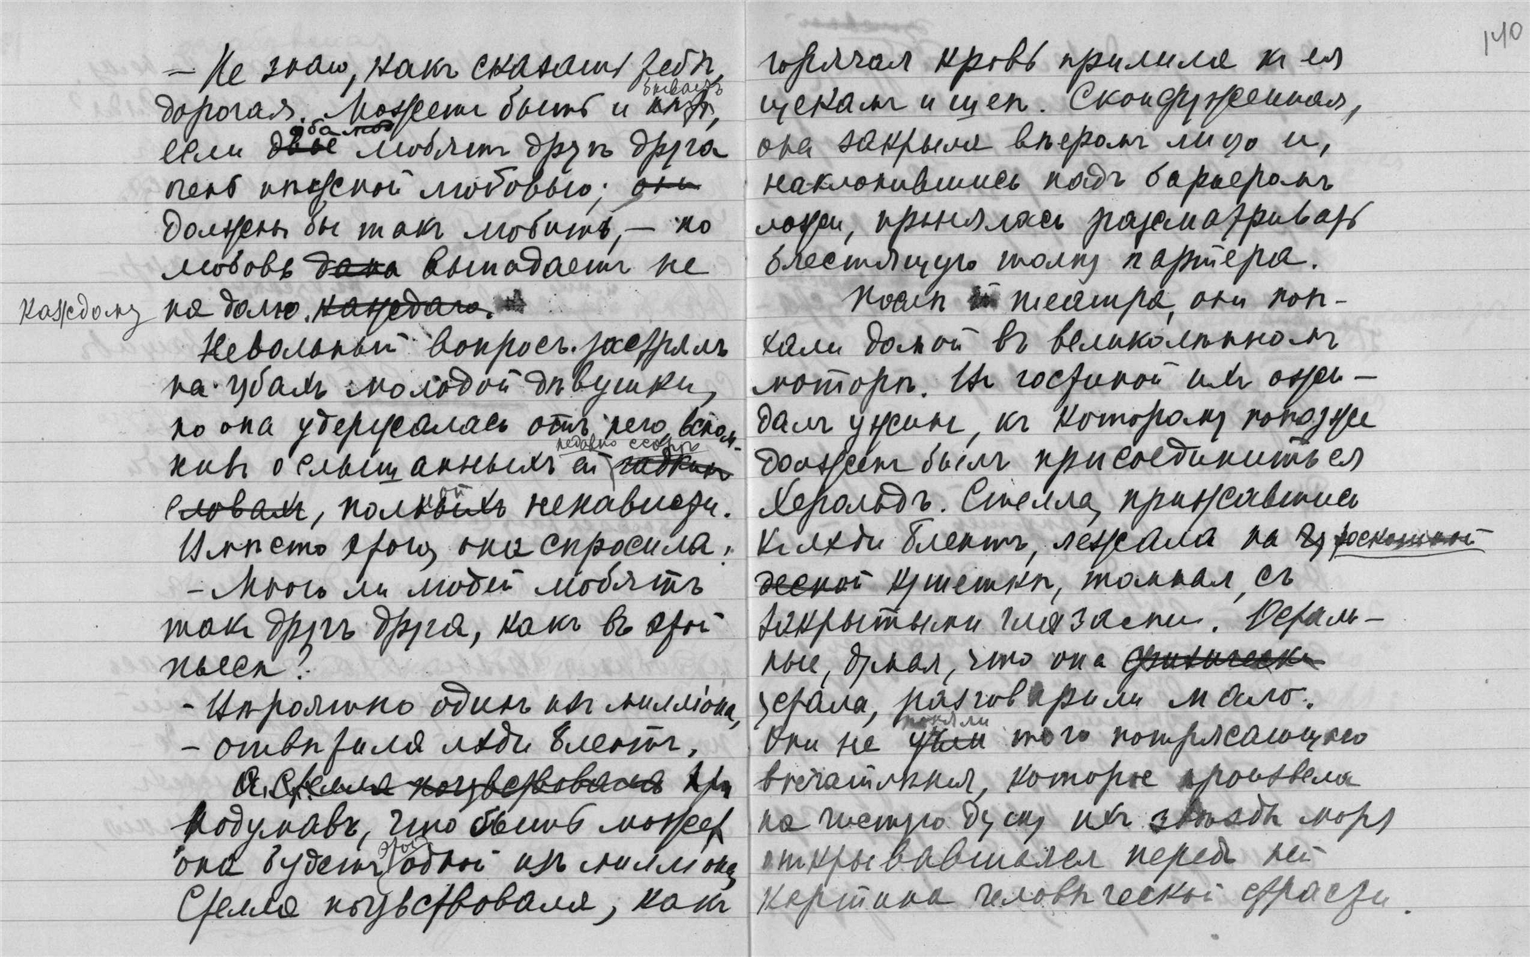 140
— Не знаю, какъ сказать тебѣ,
дорогая. Можетъ быть и бываетъ,
если оба любятъ другъ друга
этой нѣжной любовью; они
должны бы такъ любить, — но
любовь дана выпадаетъ не
каждому на долю. каждаго.
Невольный вопросъ застрялъ
на губахъ молодой дѣвушки,
но она удержалась отъ него, вспом-
нивъ о слышанныхъ ей недавно
словахъ, полныхъ ненависти.
Вмѣсто этого, она спросила:
— Много ли людей любятъ
такъ другъ друга, какъ въ этой
пьесѣ?
— Вѣроятно одинъ изъ милліона,
— отвѣтила лэди Блентъ.
А Стелла почувствовала При
Подумавъ, что быть можетъ
она будетъ этой одной изъ милліона,
Стелла почувствовала, какъ
горячая кровь прилила къ ея
щекамъ и шеѣ. Сконфуженная,
она закрыла вѣеромъ лицо и,
наклонившись надъ барьеромъ
ложи, принялась разсматривать
блестящую толпу партера.
Послѣ театра, они поѣ-
хали домой въ великолѣпномъ
моторѣ. Въ гостиной ихъ ожи-
далъ ужинъ, къ которому попозже
долженъ былъ присоединиться
Херольдъ. Стелла, прижавшись
къ лэди Блентъ, лежала на роскошной
кушеткѣ, томная, съ
закрытыми глазами. Осталь-
ные, думая, что она физически
устала, разговаривали мало.
Они не поняли того потрясающаго
впечатлѣнія, которое произвела
на чистую душу ихъ звѣзды моря
открывавшаяся передъ ней
картина человѣческой страсти.